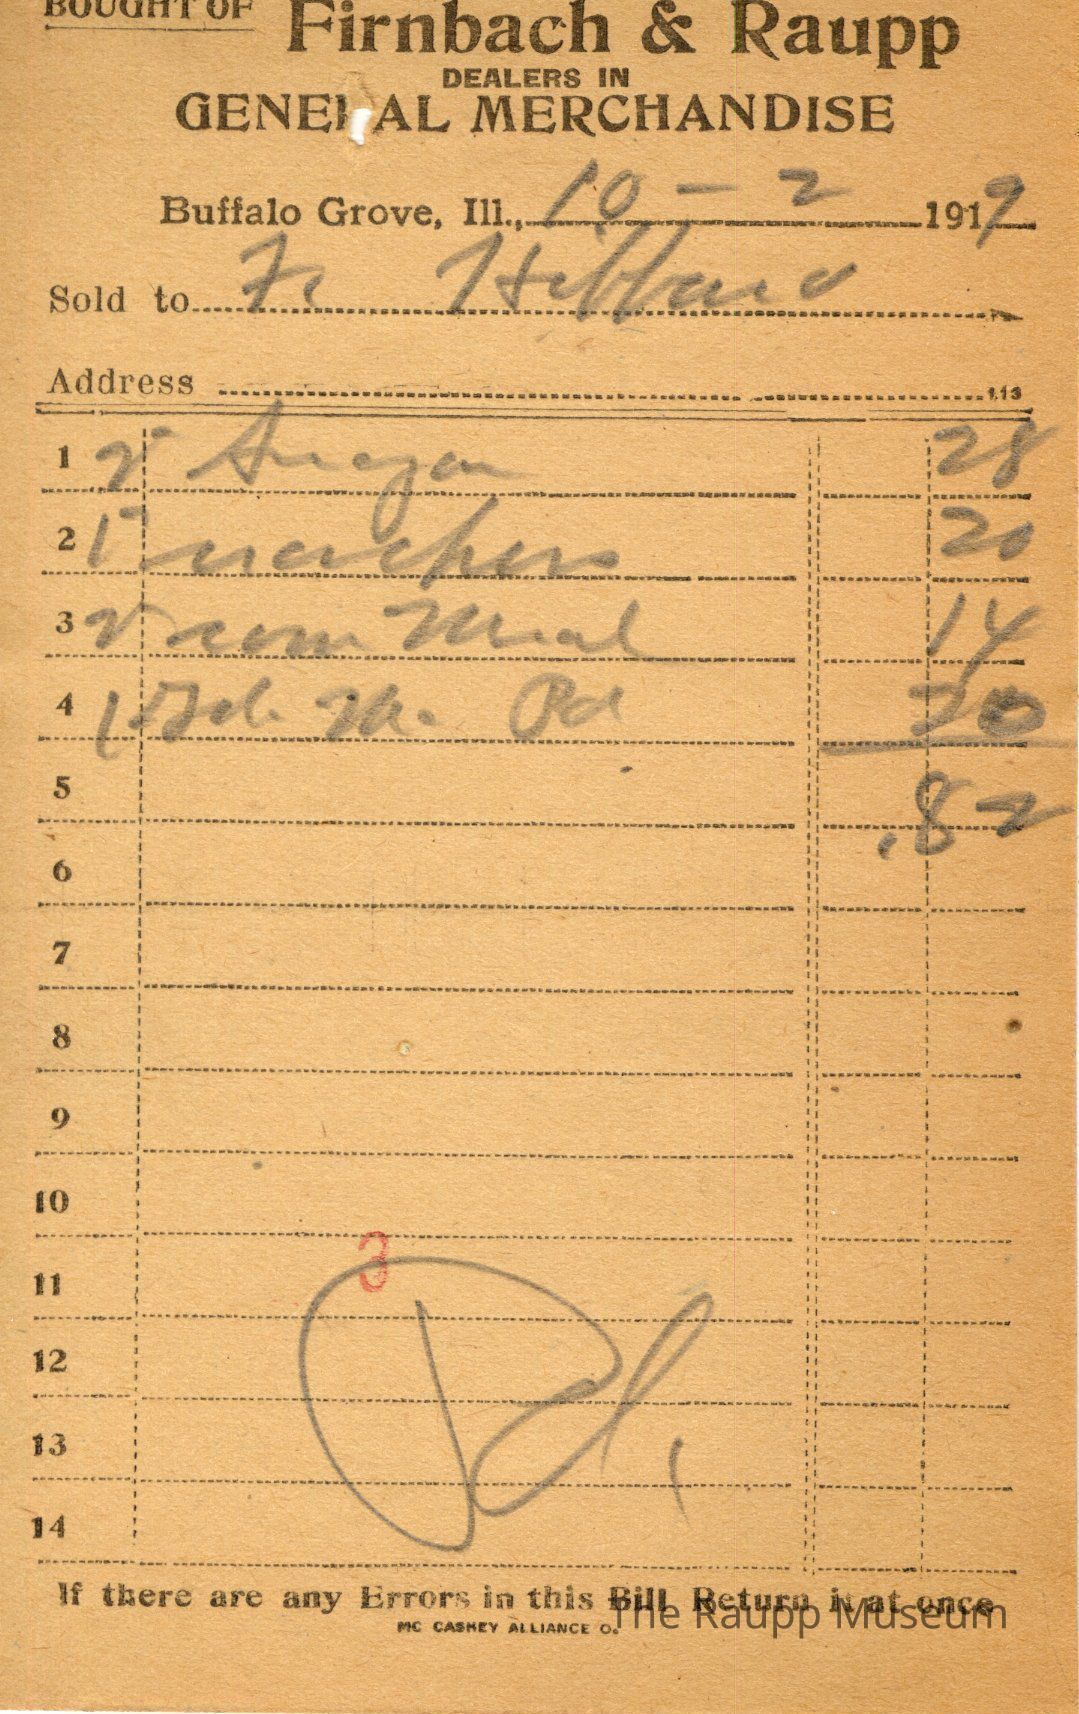 BOUGHT OF
Firnbach & Raupp
DEALERS IN
GENERAL MERCHANDISE
Buffalo Grove, Ill., 10 - 2 1919
Sold to Hibbard
Address 113
1 2 Sugar 28
2 1 20
3 2 corn Meal 14
4 1 Pd 20
5 .82
6
7
8
9
10
3
11
12
Pd.
13
14
If there are any Errors in this Bill Return it at once
The Raupp Museum
MC CASKEY ALLIANCE O.